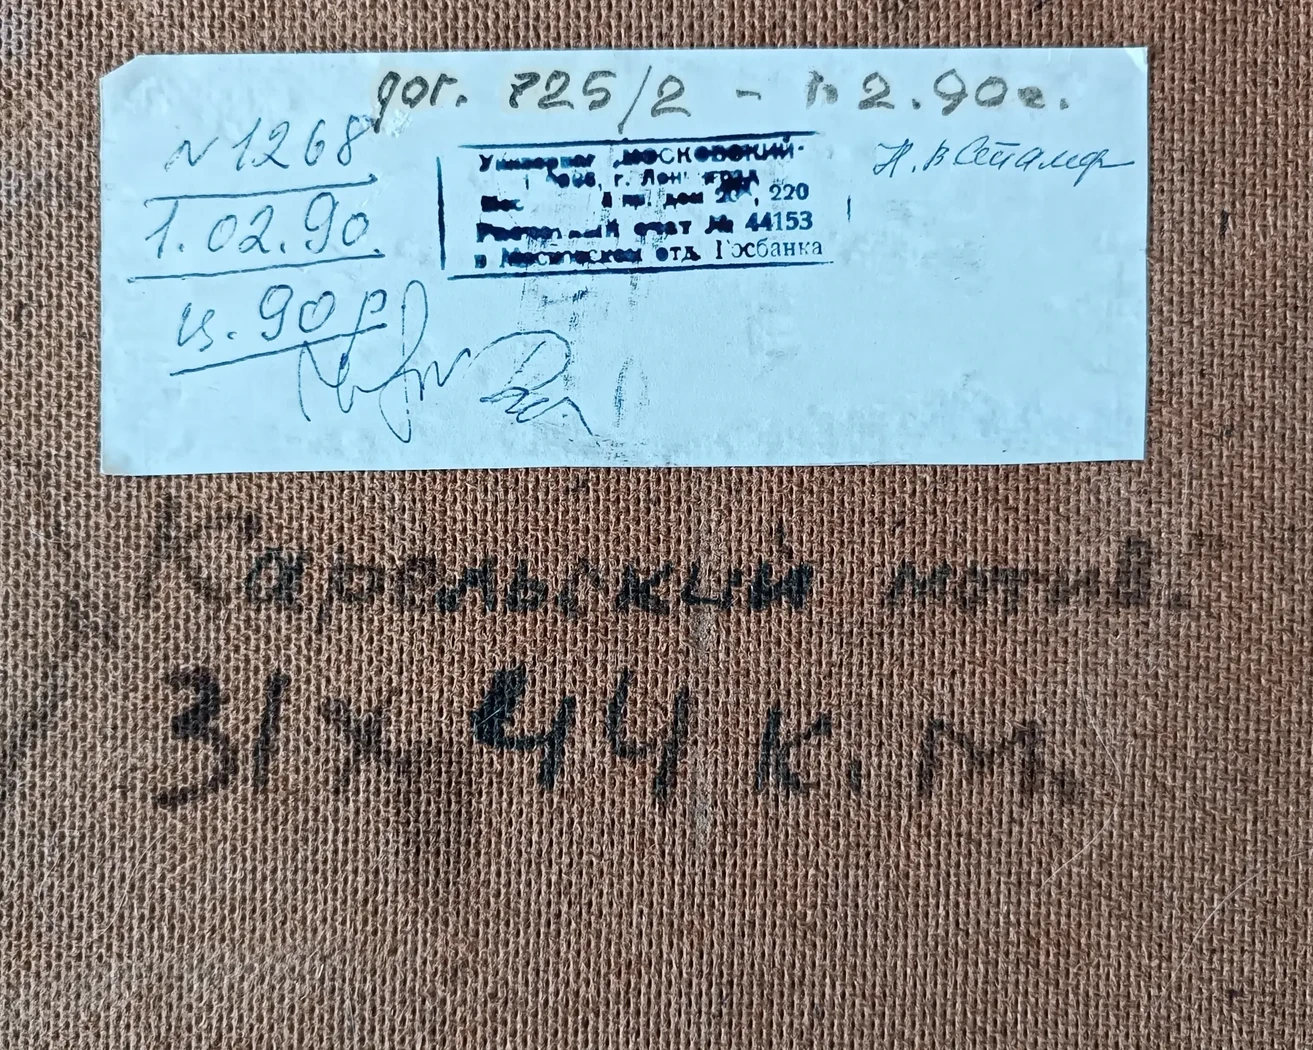 дог. 725/2 - 1.2.90г.
N 1268
1.02.90.
ц. 90 р
Универмаг „МОСКОВСКИЙ"
г. Ленинград
пр. дом 220
Расчетный счет № 44153
в Московском отд. Госбанка
Н. В
Карельский мотив.
31 х 44 к. м